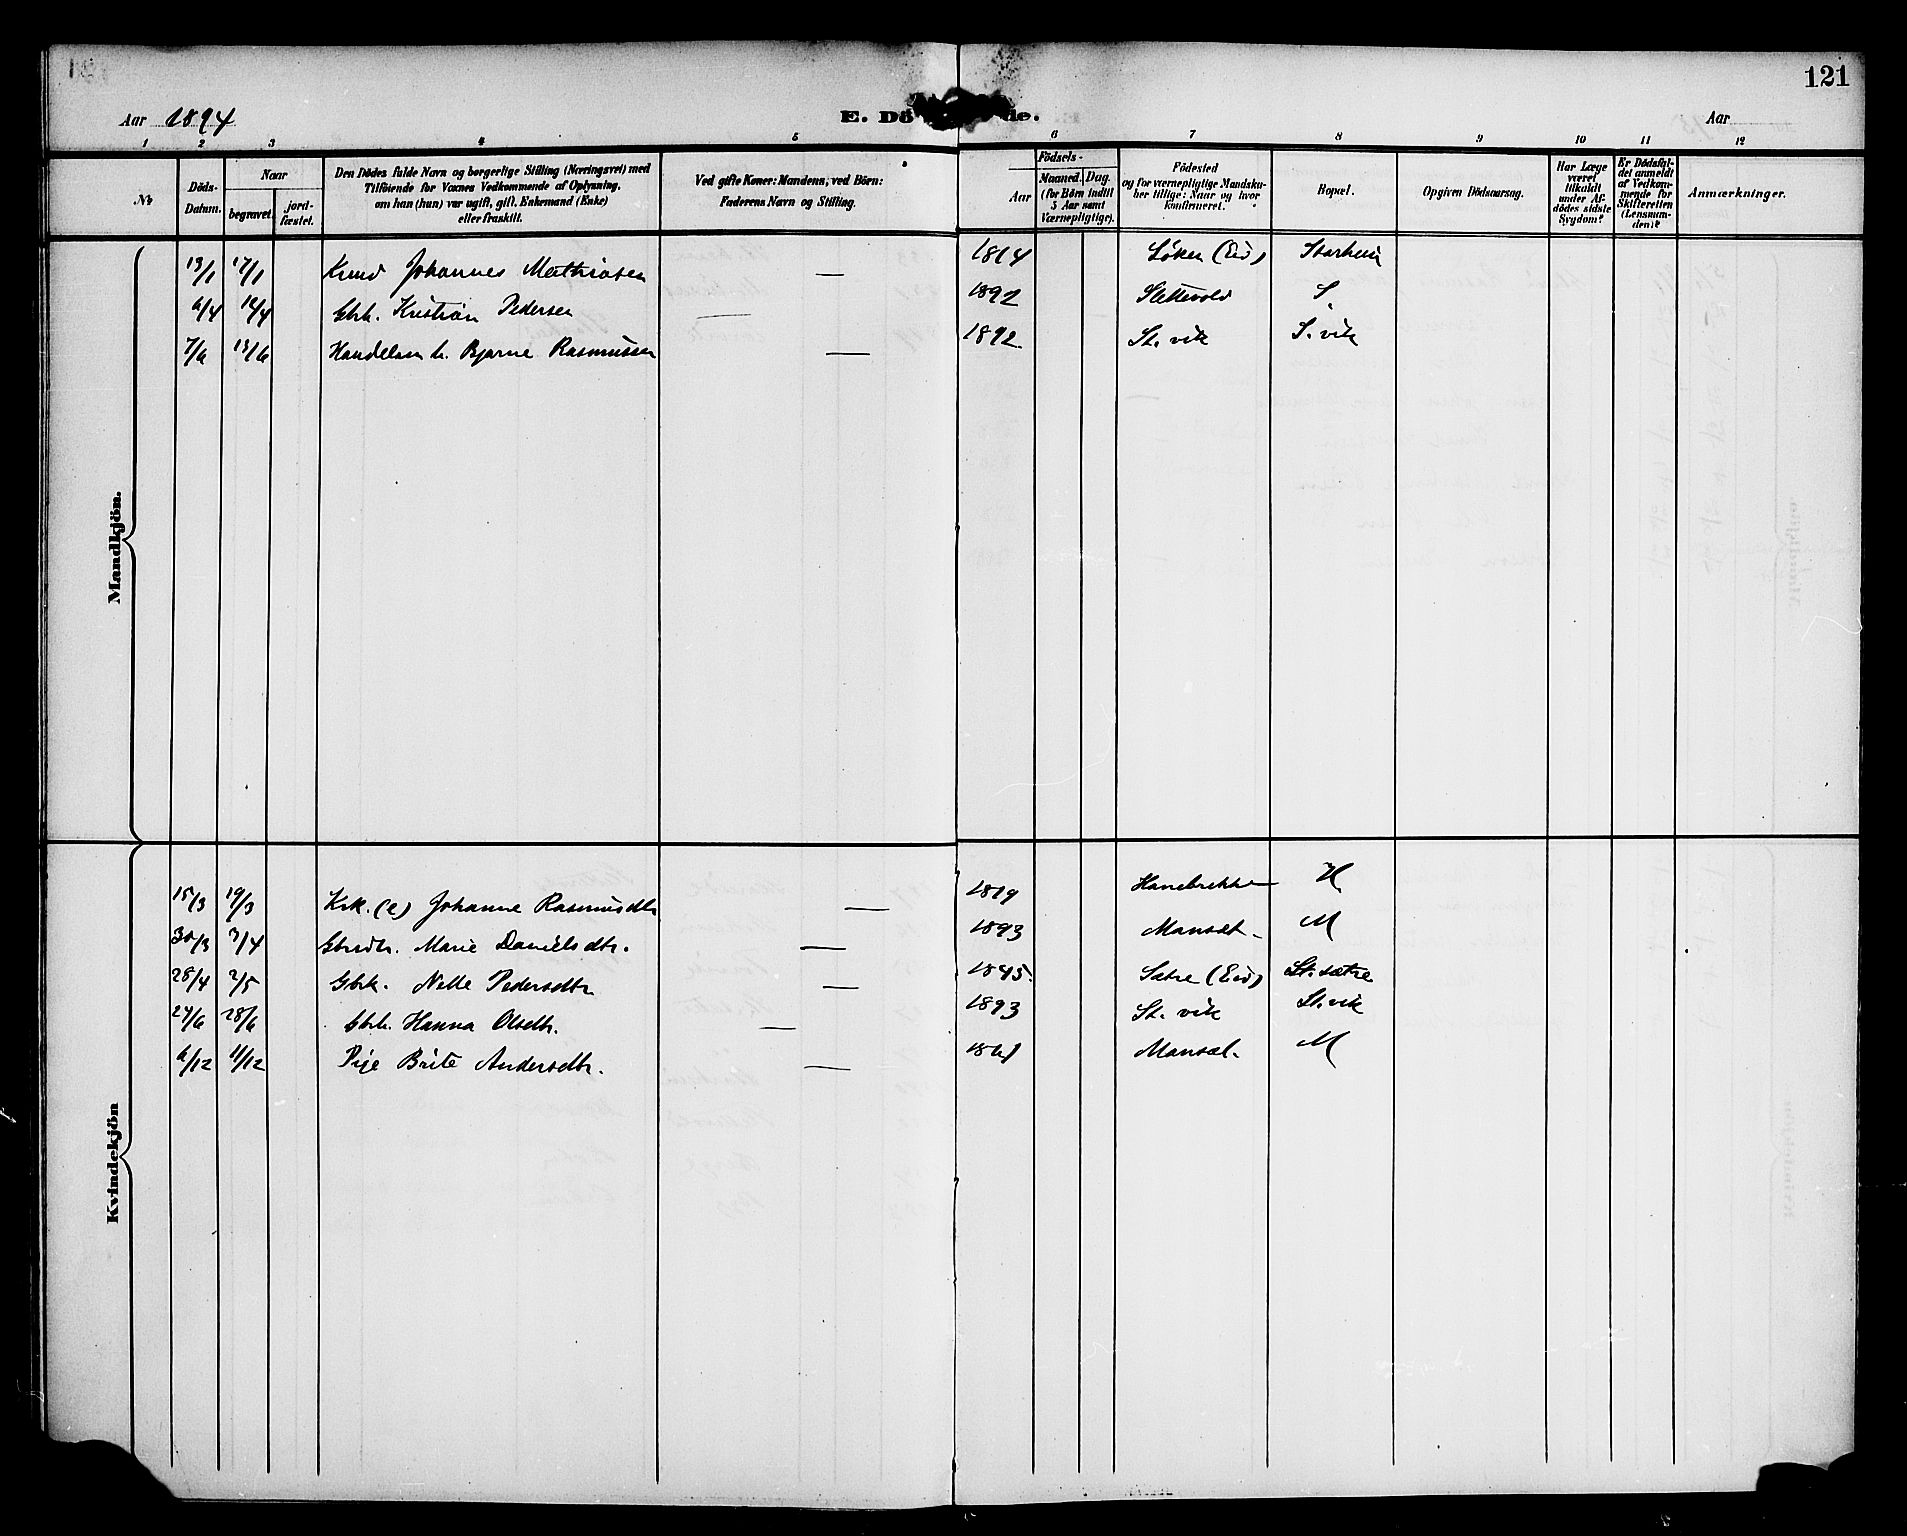 121
Aar 1894 E. Dö de. Aar
1 2 3 4 5 6 7 8 9 10 11 12
№
Döds-Datum.
Naar
begravet.
jord-fæstet.
Den Dödes fulde Navn og borgerlige Stilling (Næringsvei) med
Tilföiende for Voxnes Vedkommende af Oplysning,
om han (hun) var ugift, gift, Enkemand (Enke)
eller fraskilt.
Ved gifte Koner: Mandens; ved Börn:
Faderens Navn og Stilling.
Födsels-
Aar
Maaned. Dag.
(for Börn indtil
5 Aar samt
Værnepligtige).
Födested
og for værnepligtige Mandsku-
ber tillige: Naar og hvor
konfirmeret.
Bopæl.
Opgiven Dödsaarsag.
Har Læge
været
tilkaldt
under Af-
dödes sidste
Sygdom?
Er Dödsfal-
det anmeldt
af Vedkom-
mende for
Skifteretten
(Lensman-
den)?
Anmærkninger.
Mandkjön.
13/1 17/1 Knud Johannes Mathiasen — 1814 Løken (Eid) Starheim
6/4 12/4 Gbrk. Kristian Pedersen — 1892 Slettevold S.
7/6 13/6 Handelsm. b. Bjarne Rasmussen — 1892 St. vik S. vik
Kvindekjön
15/3 19/3 Krk. (e) Johanne Rasmusdtr — 1819 Hanebrekke H
30/3 3/4 Gbrdtr. Marie Danielsdtr. — 1893 Mansæt. M
28/4 2/5 Gbrk. Nille Pedersdtr — 1845. Sætre (Eid) St. sætre
24/6 28/6 Gbrb. Hanna Olsdtr. — 1893 St. vik St. vik
6/12 11/12 Pige Brite Andersdtr. — 1861 Mansæt. M